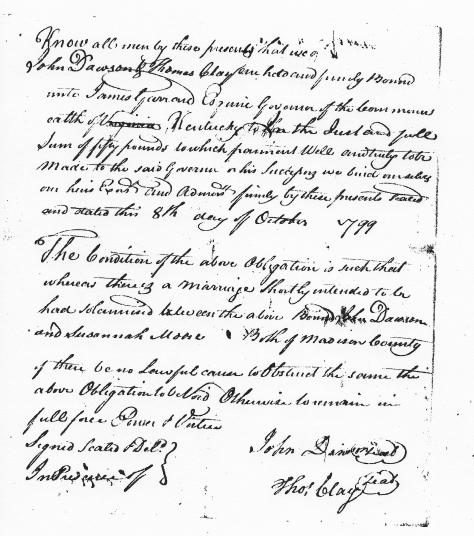 Know all men by these presents that we
John Dawson & Thomas Clay are held and firmly Bound
unto James Garrard Esquire Governor of the Commonw
ealth of Virginia Kentucky to the Just and full
Sum of fifty pounds to which paiment Well and truly to be
Made to the said Governor or his Successors we bind ourselves
our heirs Exors and Admors firmly by these presents Sealed
and dated this 8th day of October 1799
The Condition of the above Obligation is such that
whereas there is a marriage Shortly intended to be
had Solemnised between the above Bound John Dawson
and Susannah Moore Both of Madison County
if there be no Lawful cause to Obstruct the same the
above Obligation to be Void Otherwise to remain in
full force Power & Virtue
Signed Sealed & Deld
In Presence of
John Dawson Seal
Thos Clay Seal